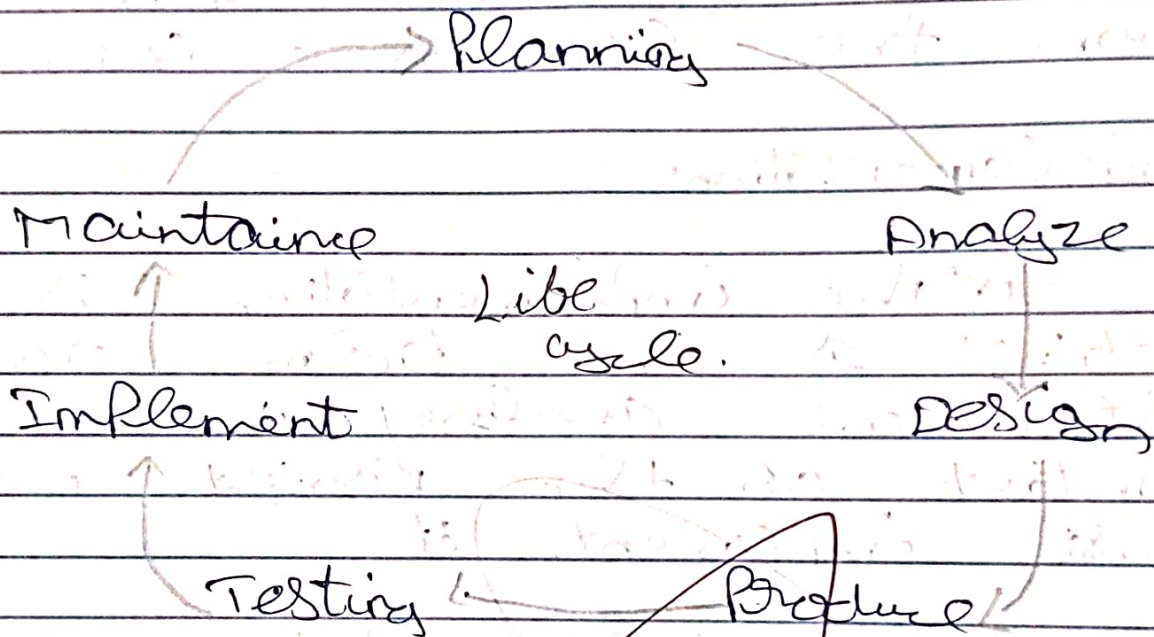 Planning
Maintaince Analyze
Life
cycle.
Implement Design
Testing Produce